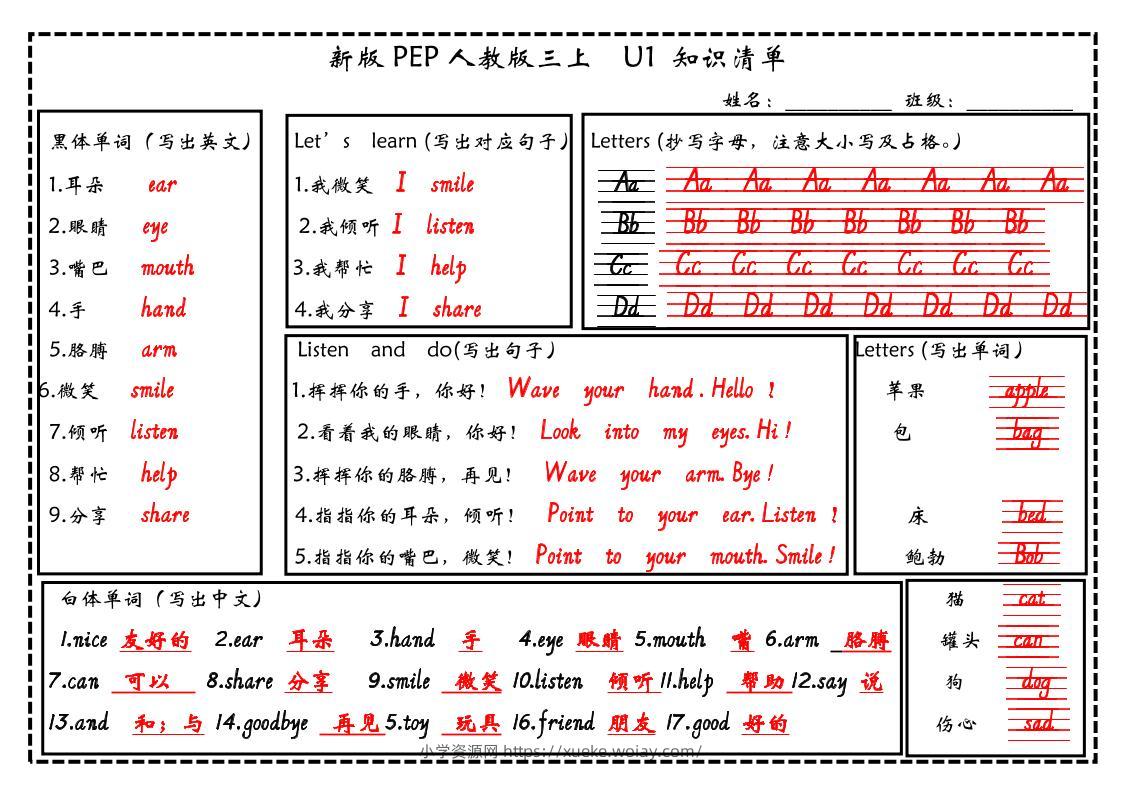 新版 PEP 人教版三上 U1 知识清单
姓名：__________ 班级：__________
黑体单词（写出英文）
1.耳朵 ear
2.眼睛 eye
3.嘴巴 mouth
4.手 hand
5.胳膊 arm
6.微笑 smile
7.倾听 listen
8.帮忙 help
9.分享 share
Let's learn (写出对应句子)
1.我微笑 I smile
2.我倾听 I listen
3.我帮忙 I help
4.我分享 I share
Letters (抄写字母，注意大小写及占格。)
Aa Aa Aa Aa Aa Aa Aa Aa
Bb Bb Bb Bb Bb Bb Bb Bb
Cc Cc Cc Cc Cc Cc Cc Cc
Dd Dd Dd Dd Dd Dd Dd Dd
Listen and do(写出句子)
1.挥挥你的手，你好！ Wave your hand. Hello !
2.看着我的眼睛，你好！ Look into my eyes. Hi !
3.挥挥你的胳膊，再见！ Wave your arm. Bye !
4.指指你的耳朵，倾听！ Point to your ear. Listen !
5.指指你的嘴巴，微笑！ Point to your mouth. Smile !
Letters (写出单词)
苹果 apple
包 bag
床 bed
鲍勃 Bob
白体单词（写出中文）
1.nice 友好的 2.ear 耳朵 3.hand 手 4.eye 眼睛 5.mouth 嘴 6.arm _胳膊
7.can 可以 8.share 分享 9.smile 微笑 10.listen 倾听 11.help 帮助 12.say 说
13.and 和；与 14.goodbye 再见 5.toy 玩具 16.friend 朋友 17.good 好的
猫 cat
罐头 can
狗 dog
伤心 sad
小学资源网 https://xueke.woiay.com/